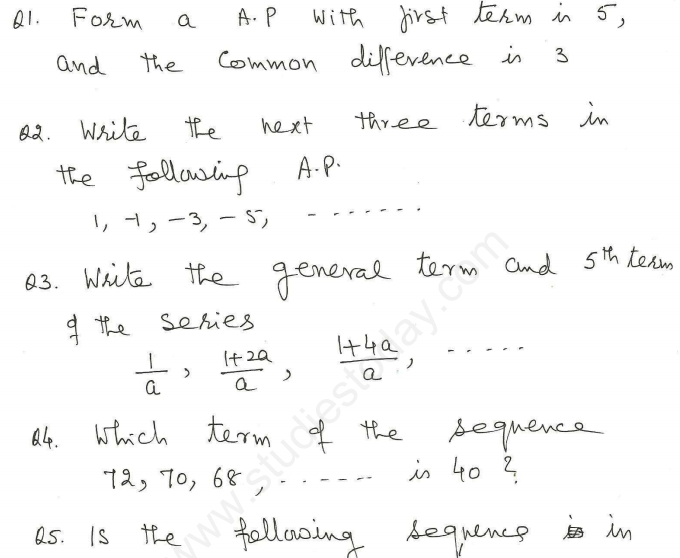 Q1. Form a A.P with first term is 5,
and the Common difference is 3
Q2. Write the next three terms in
the following A.P.
1, -1, -3, -5, -------
Q3. Write the general term and 5th term
of the series
1/a, (1+2a)/a, (1+4a)/a, -----
Q4. Which term of the sequence
72, 70, 68, ------ is 40?
Q5. Is the following sequence is in
www.studiestoday.com